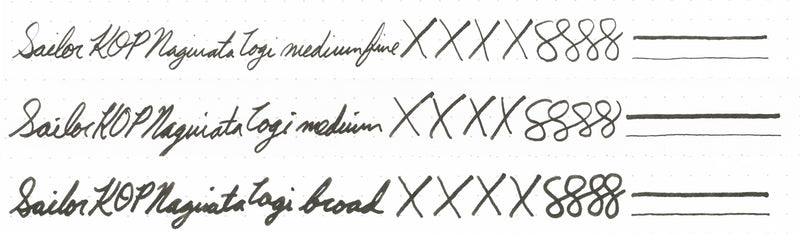 Sailor KOP Naginata Togi medium fine X X X X 8 8 8 8
Sailor KOP Naginata Togi medium X X X X 8 8 8 8
Sailor KOP Naginata Togi broad X X X X 8 8 8 8